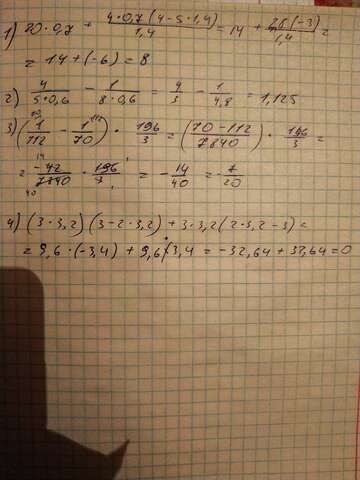 1) 20·0,7 + \frac{4·0,7(4-5·1,4)}{1,4} = 14 + \frac{2,8(-3)}{1,4} =
= 14 + (-6) = 8
2) \frac{4}{5·0,6} - \frac{1}{8·0,6} = \frac{4}{3} - \frac{1}{4,8} = 1,125
3) (\frac{1}{112} - \frac{1}{70}) · \frac{196}{3} = (\frac{70-112}{7840}) · \frac{196}{3} =
= \frac{-42}{7840} · \frac{196}{3} = -\frac{14}{40} = -\frac{7}{20}
4) (3·3,2)(3-2·3,2) + 3·3,2(2·3,2-3) =
= 9,6·(-3,4) + 9,6·3,4 = -32,64 + 32,64 = 0